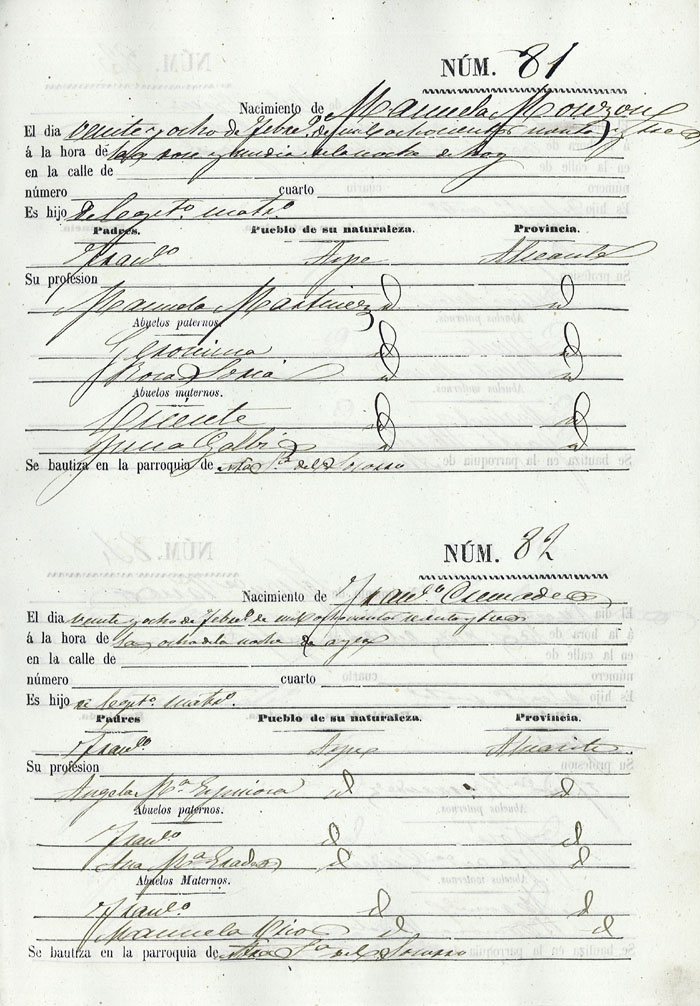 NÚM. 81
Nacimiento de Manuela Monzon
El dia veinte y ocho de Febro. de mil ochocientos
á la hora de las doce y media de la noche de hoy
en la calle de
número cuarto
Es hijo de legto. matro.
Padres. Pueblo de su naturaleza. Provincia.
Franco. Aspe Alicante
Su profesion
Manuela Martinez id id
Abuelos paternos.
Geronimo id id
Rosa Soria id id
Abuelos maternos.
Vicente id id
id id
Se bautiza en la parroquia de Sra. del Socorro
NÚM. 82
Nacimiento de Franco. Cremades
El dia veinte y ocho de Febro. de mil ochocientos
á la hora de las ocho de la noche de ayer
en la calle de
número cuarto
Es hijo de legto. matro.
Padres Pueblo de su naturaleza. Provincia.
Franco. Aspe Alicante
Su profesion
Angela Ma. id id
Abuelos paternos.
Franco. id id
Ana Ma. id id
Abuelos Maternos.
Franco. id id
Manuela Rico id id
Se bautiza en la parroquia de Ntra Sa. del Socorro